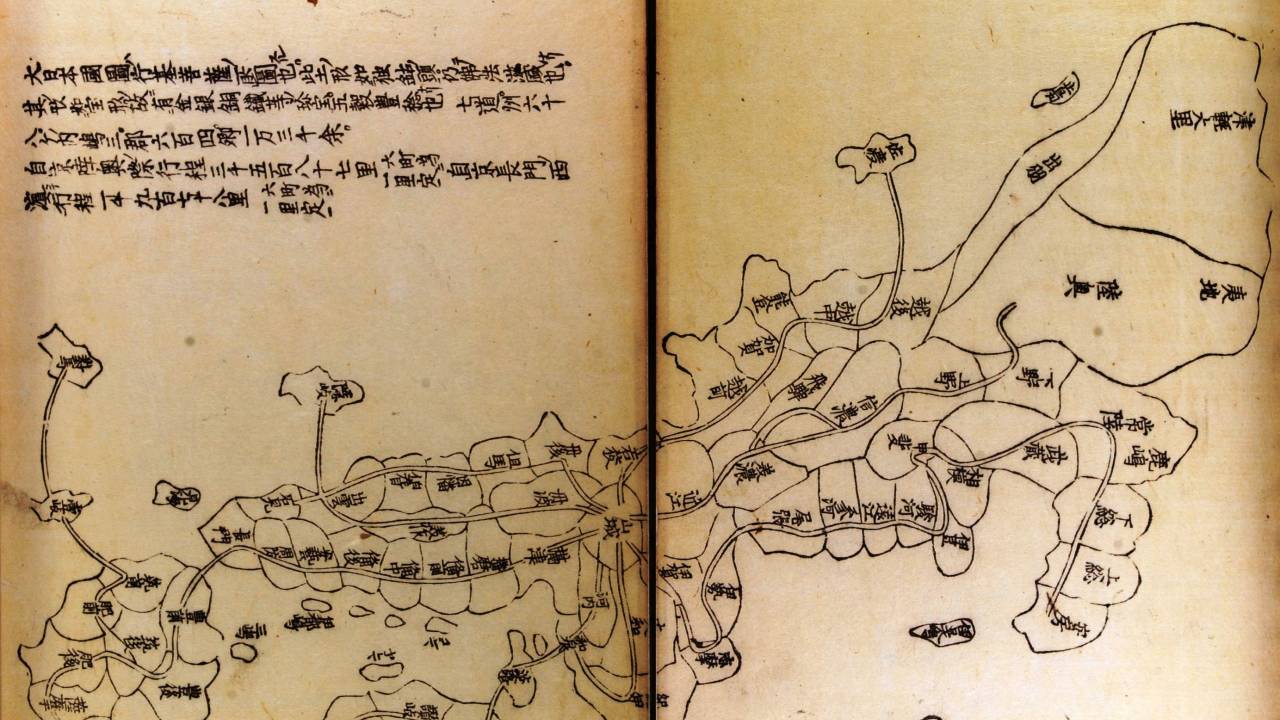 大日本國圖行基菩薩所圖也此土形如獨鈷頭仍佛法滋盛也
其形如寶形故有金銀銅鐵等珍寶五穀豊稔也 七道州六十
八 內嶋三郡六百四鄉一万三千余
自京陸奥際行程三千五百八十七里 六町為一里定 自京長門西
濱行程一千九百七十八里 六町為一里定
津輕大里
出羽
佐渡
夷地
陸奥
能登
越中
越後
加賀
越前
飛騨
信濃
上野
下野
常陸
鹿嶋
甲斐
武蔵
相模
美濃
近江
尾張
三河
遠江
駿河
伊豆
下総
上総
安房
伊賀
伊勢
志摩
對馬
隠岐
壹岐
丹後
若狭
但馬
因幡
伯耆
出雲
石見
長門
丹波
山城
美作
周防
安藝
備後
備中
備前
播磨
摂津
河内
筑前
肥前
豊前
筑後
肥後
豊後
淡路
讃岐